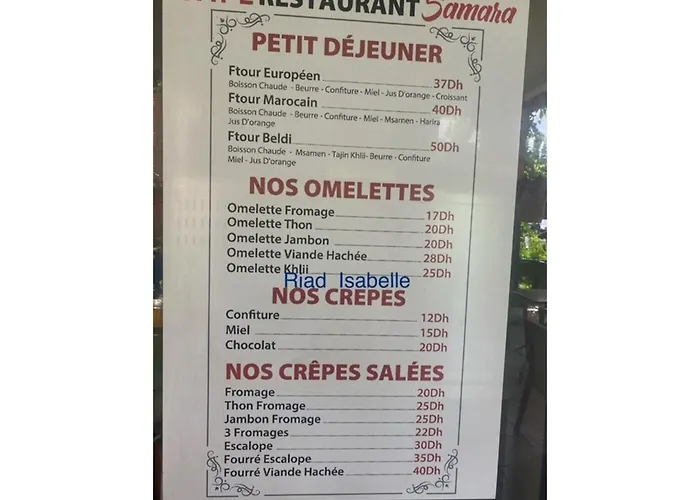 RESTAURANT Samara
PETIT DÉJEUNER
Ftour Européen 37Dh
Boisson Chaude - Beurre - Confiture - Miel - Jus D'orange - Croissant
Ftour Marocain 40Dh
Boisson Chaude - Beurre - Confiture - Miel - Msamen - Harira
Jus D'orange
Ftour Beldi 50Dh
Boisson Chaude - Msamen - Tajin Khlii- Beurre - Confiture
Miel - Jus D'orange
NOS OMELETTES
Omelette Fromage 17Dh
Omelette Thon 20Dh
Omelette Jambon 20Dh
Omelette Viande Hachée 28Dh
Omelette Khlii 25Dh
Riad Isabelle
NOS CRÊPES
Confiture 12Dh
Miel 15Dh
Chocolat 20Dh
NOS CRÊPES SALÉES
Fromage 20Dh
Thon Fromage 25Dh
Jambon Fromage 25Dh
3 Fromages 22Dh
Escalope 30Dh
Fourré Escalope 35Dh
Fourré Viande Hachée 40Dh